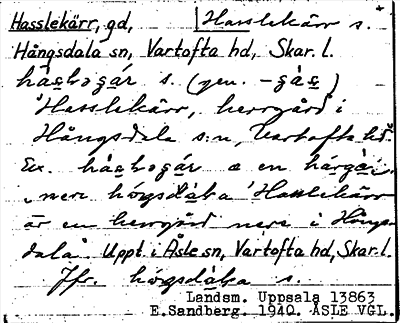 Hasslekärr, gd, Hasslekärr s.
Hångsdala sn, Vartofta hd, Skar. l.
s. (gen.
Hasslekärr, herrgård i
Hångsdala sn, Vartofta hd.
Ex. a en
Hasslekärr
är en herrgård nere i Hångs-
dala". Uppt. i Åsle sn, Vartofta hd, Skar. l.
Jfr. s.
Landsm. Uppsala 13863
E.Sandberg. 1940. ÅSLE VGL.